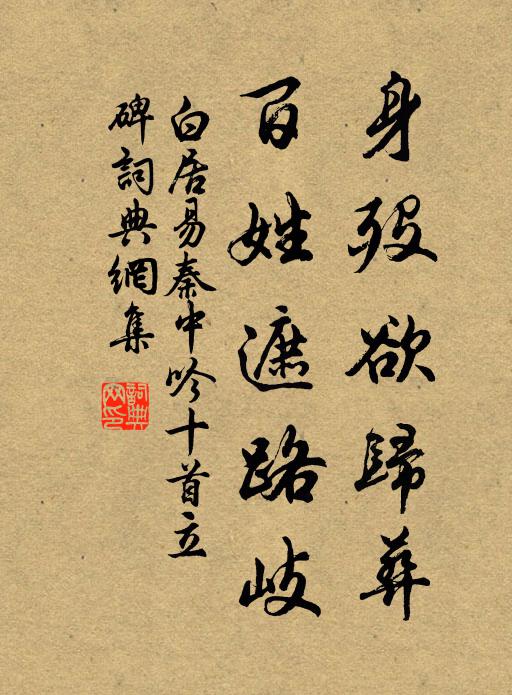 身歿欲歸葬
百姓遮路岐
白居易秦中吟十首立
碑詞典網集
詞典網印